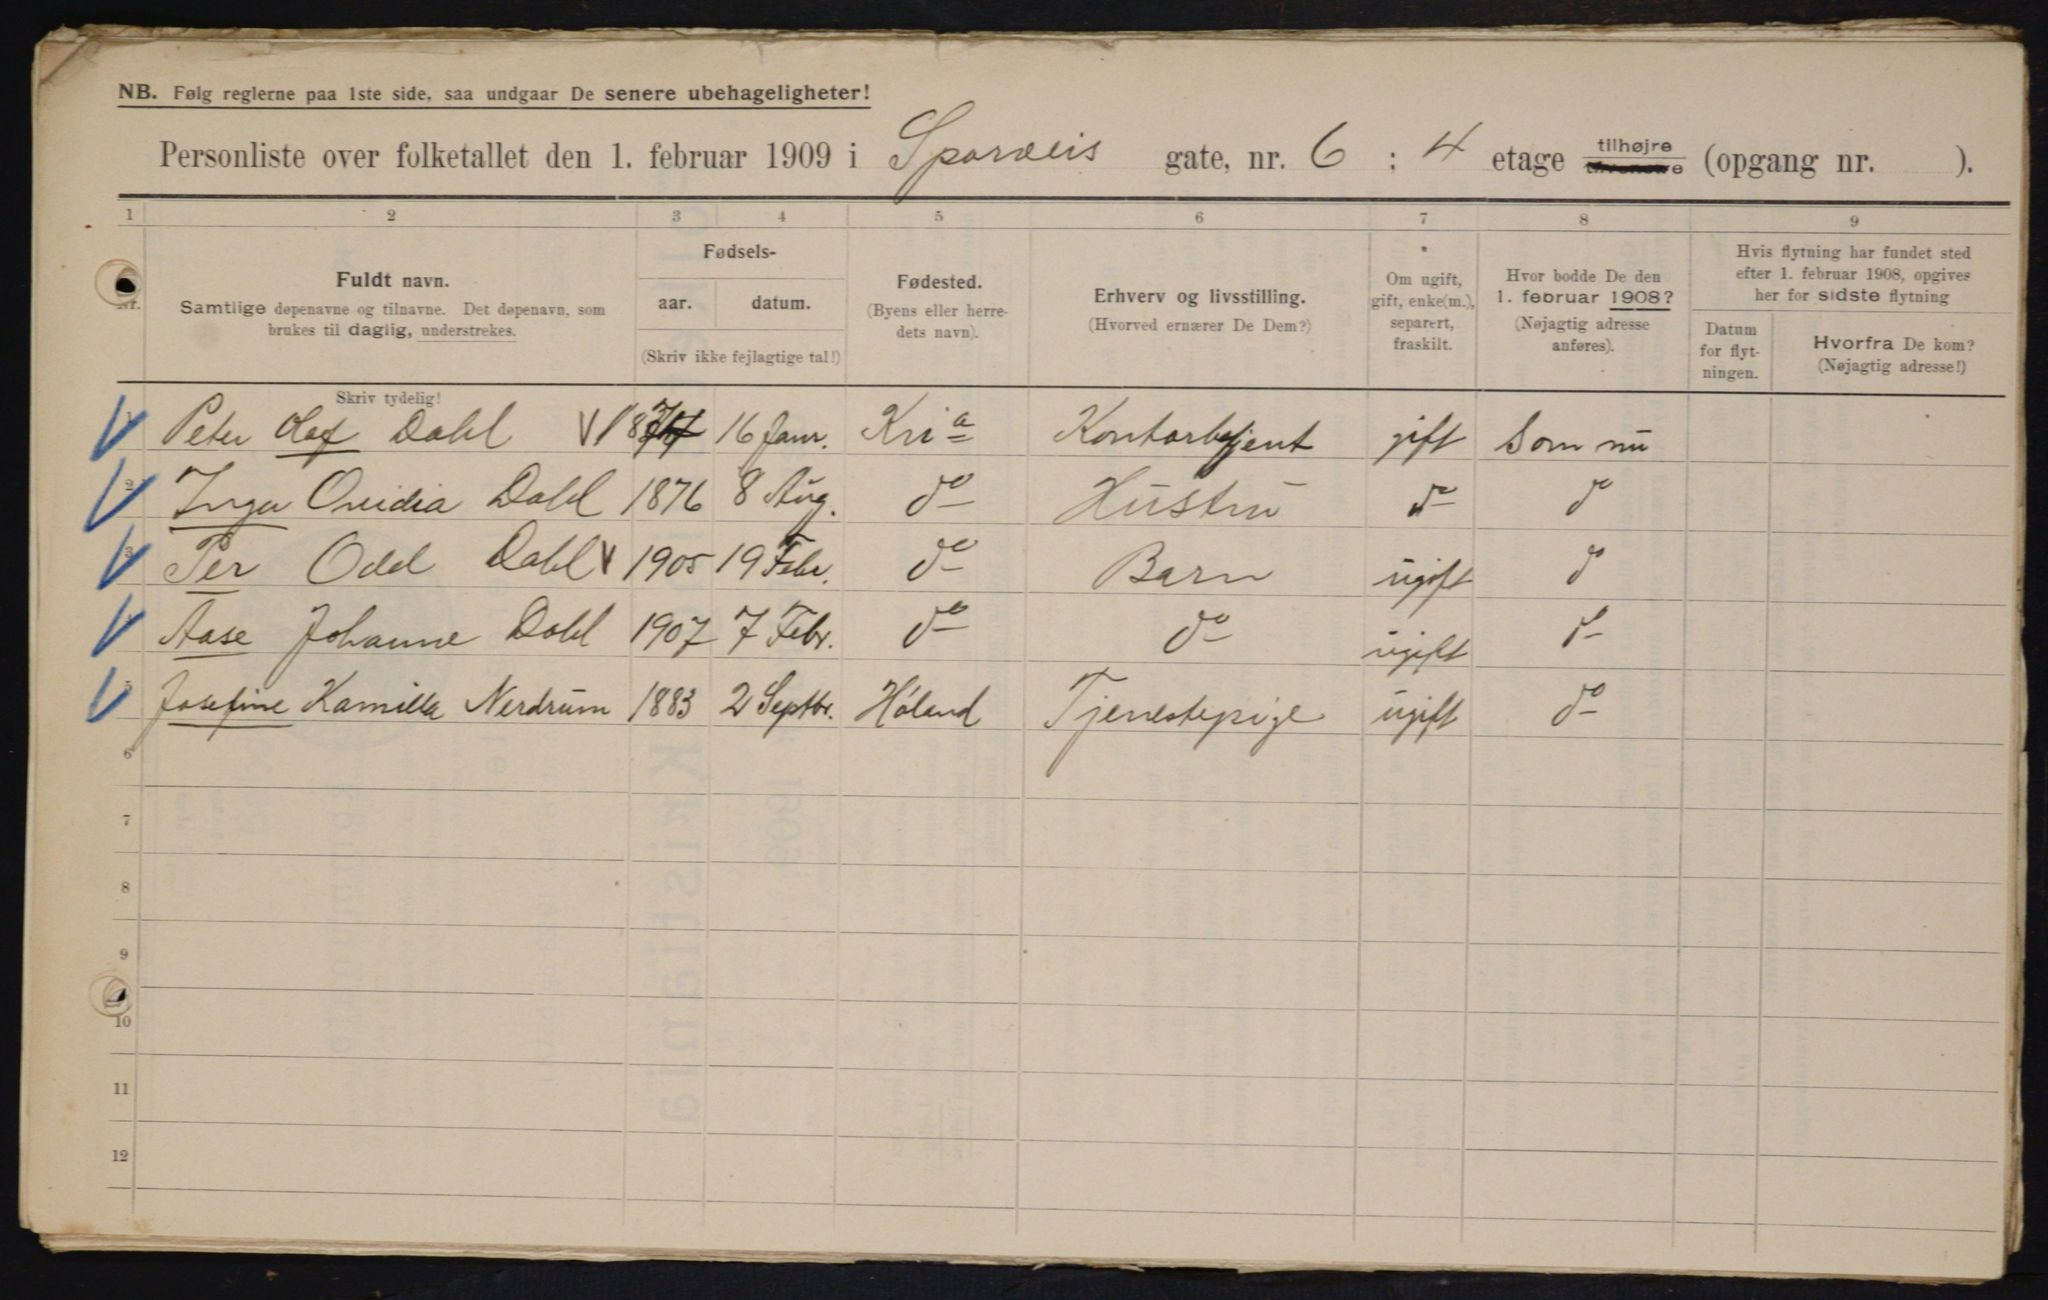 NB. Følg reglerne paa 1ste side, saa undgaar De senere ubehageligheter!
Personliste over folketallet den 1. februar 1909 i Sporveis gate, nr. 6 ; 4 etage tilhøjre (opgang nr. ).
1 2 3 4 5 6 7 8 9
Nr.
Fuldt navn.
Samtlige døpenavne og tilnavne. Det døpenavn, som
brukes til daglig, understrekes.
Skriv tydelig!
Fødsels-
aar. datum.
(Skriv ikke fejlagtige tal!)
Fødested.
(Byens eller herre-
dets navn).
Erhverv og livsstilling.
(Hvorved ernærer De Dem?)
*
Om ugift,
gift, enke(m.),
separert,
fraskilt.
Hvor bodde De den
1. februar 1908?
(Nøjagtig adresse
anføres).
Hvis flytning har fundet sted
efter 1. februar 1908, opgives
her for sidste flytning
Datum
for flyt-
ningen.
Hvorfra De kom?
(Nøjagtig adresse!)
1 Peter Olaf Dahl 16 Janr. Kria Kontorbetjent gift Som nu
2 Inga Ovidia Dahl 1876 8 Aug. do Hustru do do
3 Per Odd Dahl 1905 19 Febr. do Barn ugift do
4 Aase Johanne Dahl 1907 7 Febr. do do ugift do
5 Josefine Kamilla Nerdrum 1883 2 Septbr. Høland Tjenestepige ugift do
6
7
8
9
10
11
12